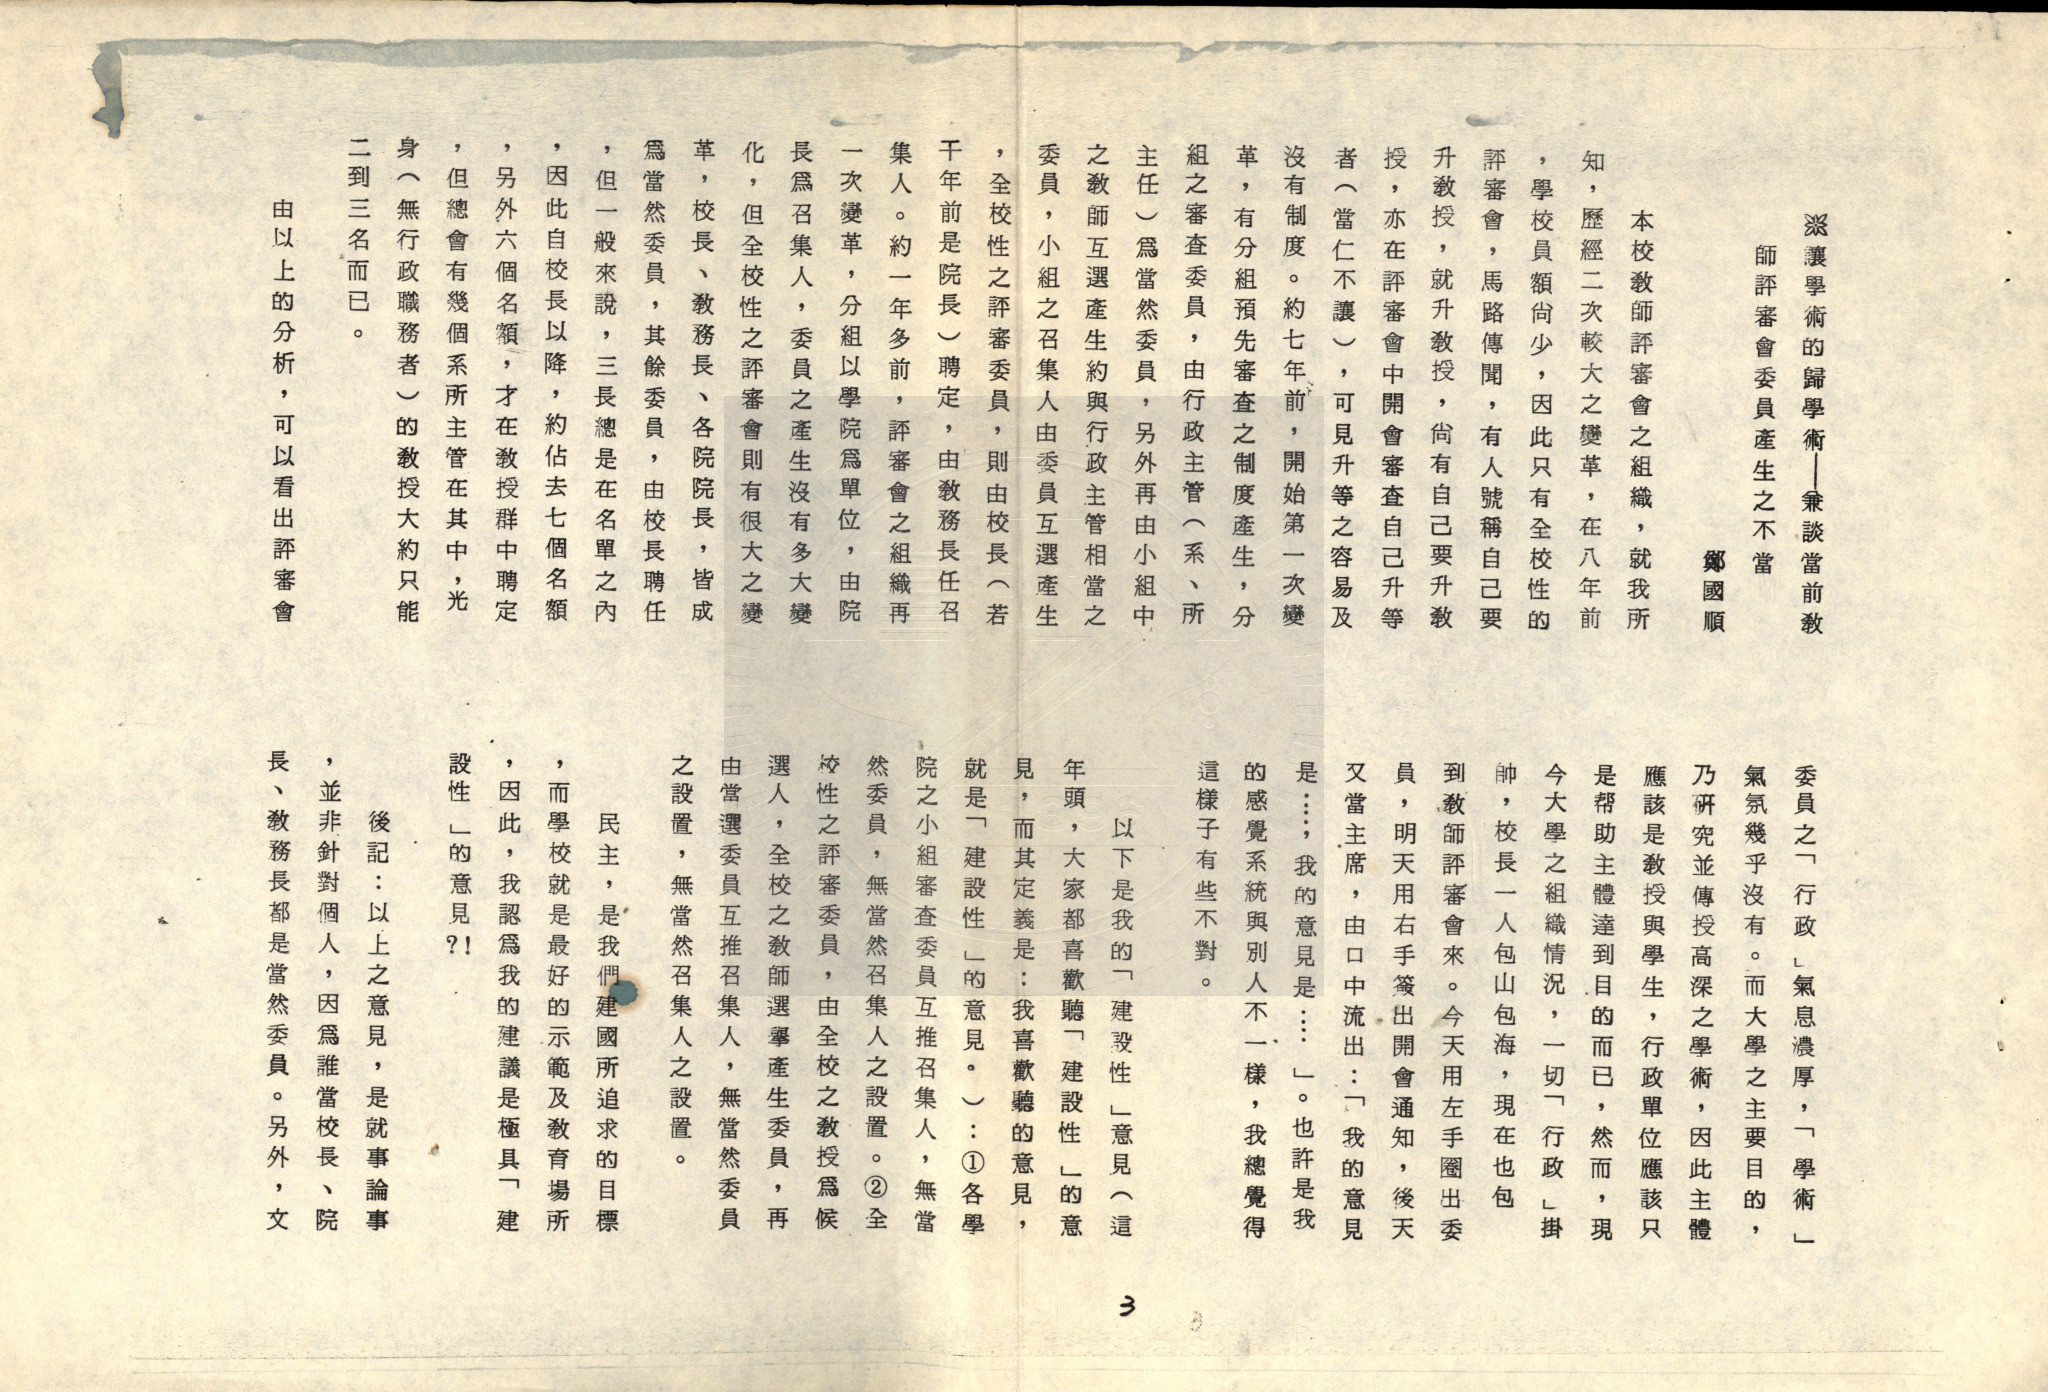 ※讓學術的歸學術——兼談當前教
師評審會委員產生之不當
鄭國順
本校教師評審會之組織，就我所
知，歷經二次較大之變革，在八年前
，學校員額尙少，因此只有全校性的
評審會，馬路傳聞，有人號稱自己要
升教授，就升教授，尙有自己要升教
授，亦在評審會中開會審查自己升等
者（當仁不讓），可見升等之容易及
沒有制度。約七年前，開始第一次變
革，有分組預先審查之制度產生，分
組之審查委員，由行政主管（系、所
主任）爲當然委員，另外再由小組中
之教師互選產生約與行政主管相當之
委員，小組之召集人由委員互選產生
，全校性之評審委員，則由校長（若
干年前是院長）聘定，由教務長任召
集人。約一年多前，評審會之組織再
一次變革，分組以學院爲單位，由院
長爲召集人，委員之產生沒有多大變
化，但全校性之評審會則有很大之變
革，校長、教務長、各院院長，皆成
爲當然委員，其餘委員，由校長聘任
，但一般來說，三長總是在名單之內
，因此自校長以降，約佔去七個名額
，另外六個名額，才在教授群中聘定
，但總會有幾個系所主管在其中，光
身（無行政職務者）的教授大約只能
二到三名而已。
由以上的分析，可以看出評審會
委員之「行政」氣息濃厚，「學術」
氣氛幾乎沒有。而大學之主要目的，
乃硏究並傳授高深之學術，因此主體
應該是教授與學生，行政單位應該只
是帮助主體達到目的而已，然而，現
今大學之組織情況，一切「行政」掛
帥，校長一人包山包海，現在也包
到教師評審會來。今天用左手圈出委
員，明天用右手簽出開會通知，後天
又當主席，由口中流出：「我的意見
是……，我的意見是……」。也許是我
的感覺系統與別人不一樣，我總覺得
這樣子有些不對。
以下是我的「建設性」意見（這
年頭，大家都喜歡聽「建設性」的意
見，而其定義是：我喜歡聽的意見，
就是「建設性」的意見。）：①各學
院之小組審查委員互推召集人，無當
然委員，無當然召集人之設置。②全
校性之評審委員，由全校之教授爲候
選人，全校之教師選舉產生委員，再
由當選委員互推召集人，無當然委員
之設置，無當然召集人之設置。
民主，是我們建國所追求的目標
，而學校就是最好的示範及教育場所
，因此，我認爲我的建議是極具「建
設性」的意見？！
後記：以上之意見，是就事論事
，並非針對個人，因爲誰當校長、院
長、教務長都是當然委員。另外，文
3